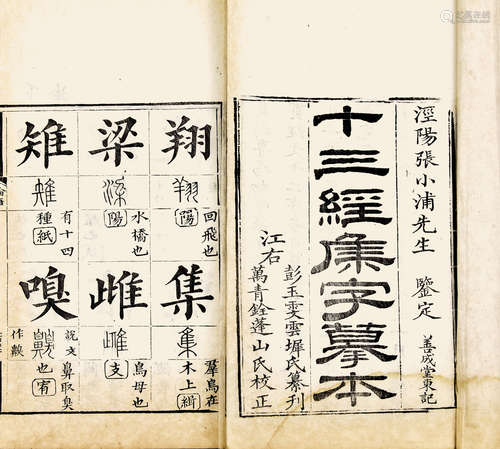 涇陽張小浦先生 鑒定
善成堂東記
十三經集字摹本
彭玉雯雲墀氏纂刊
江右
萬青銓蓬山氏校正
翔
翔
陽
回飛也
集
集
緝
羣鳥在
木上
梁
陽
水橋也
雌
雌
支
鳥母也
雉
雉
紙
有十四
種
嗅
宥
說文
鼻取臭
也
作齅